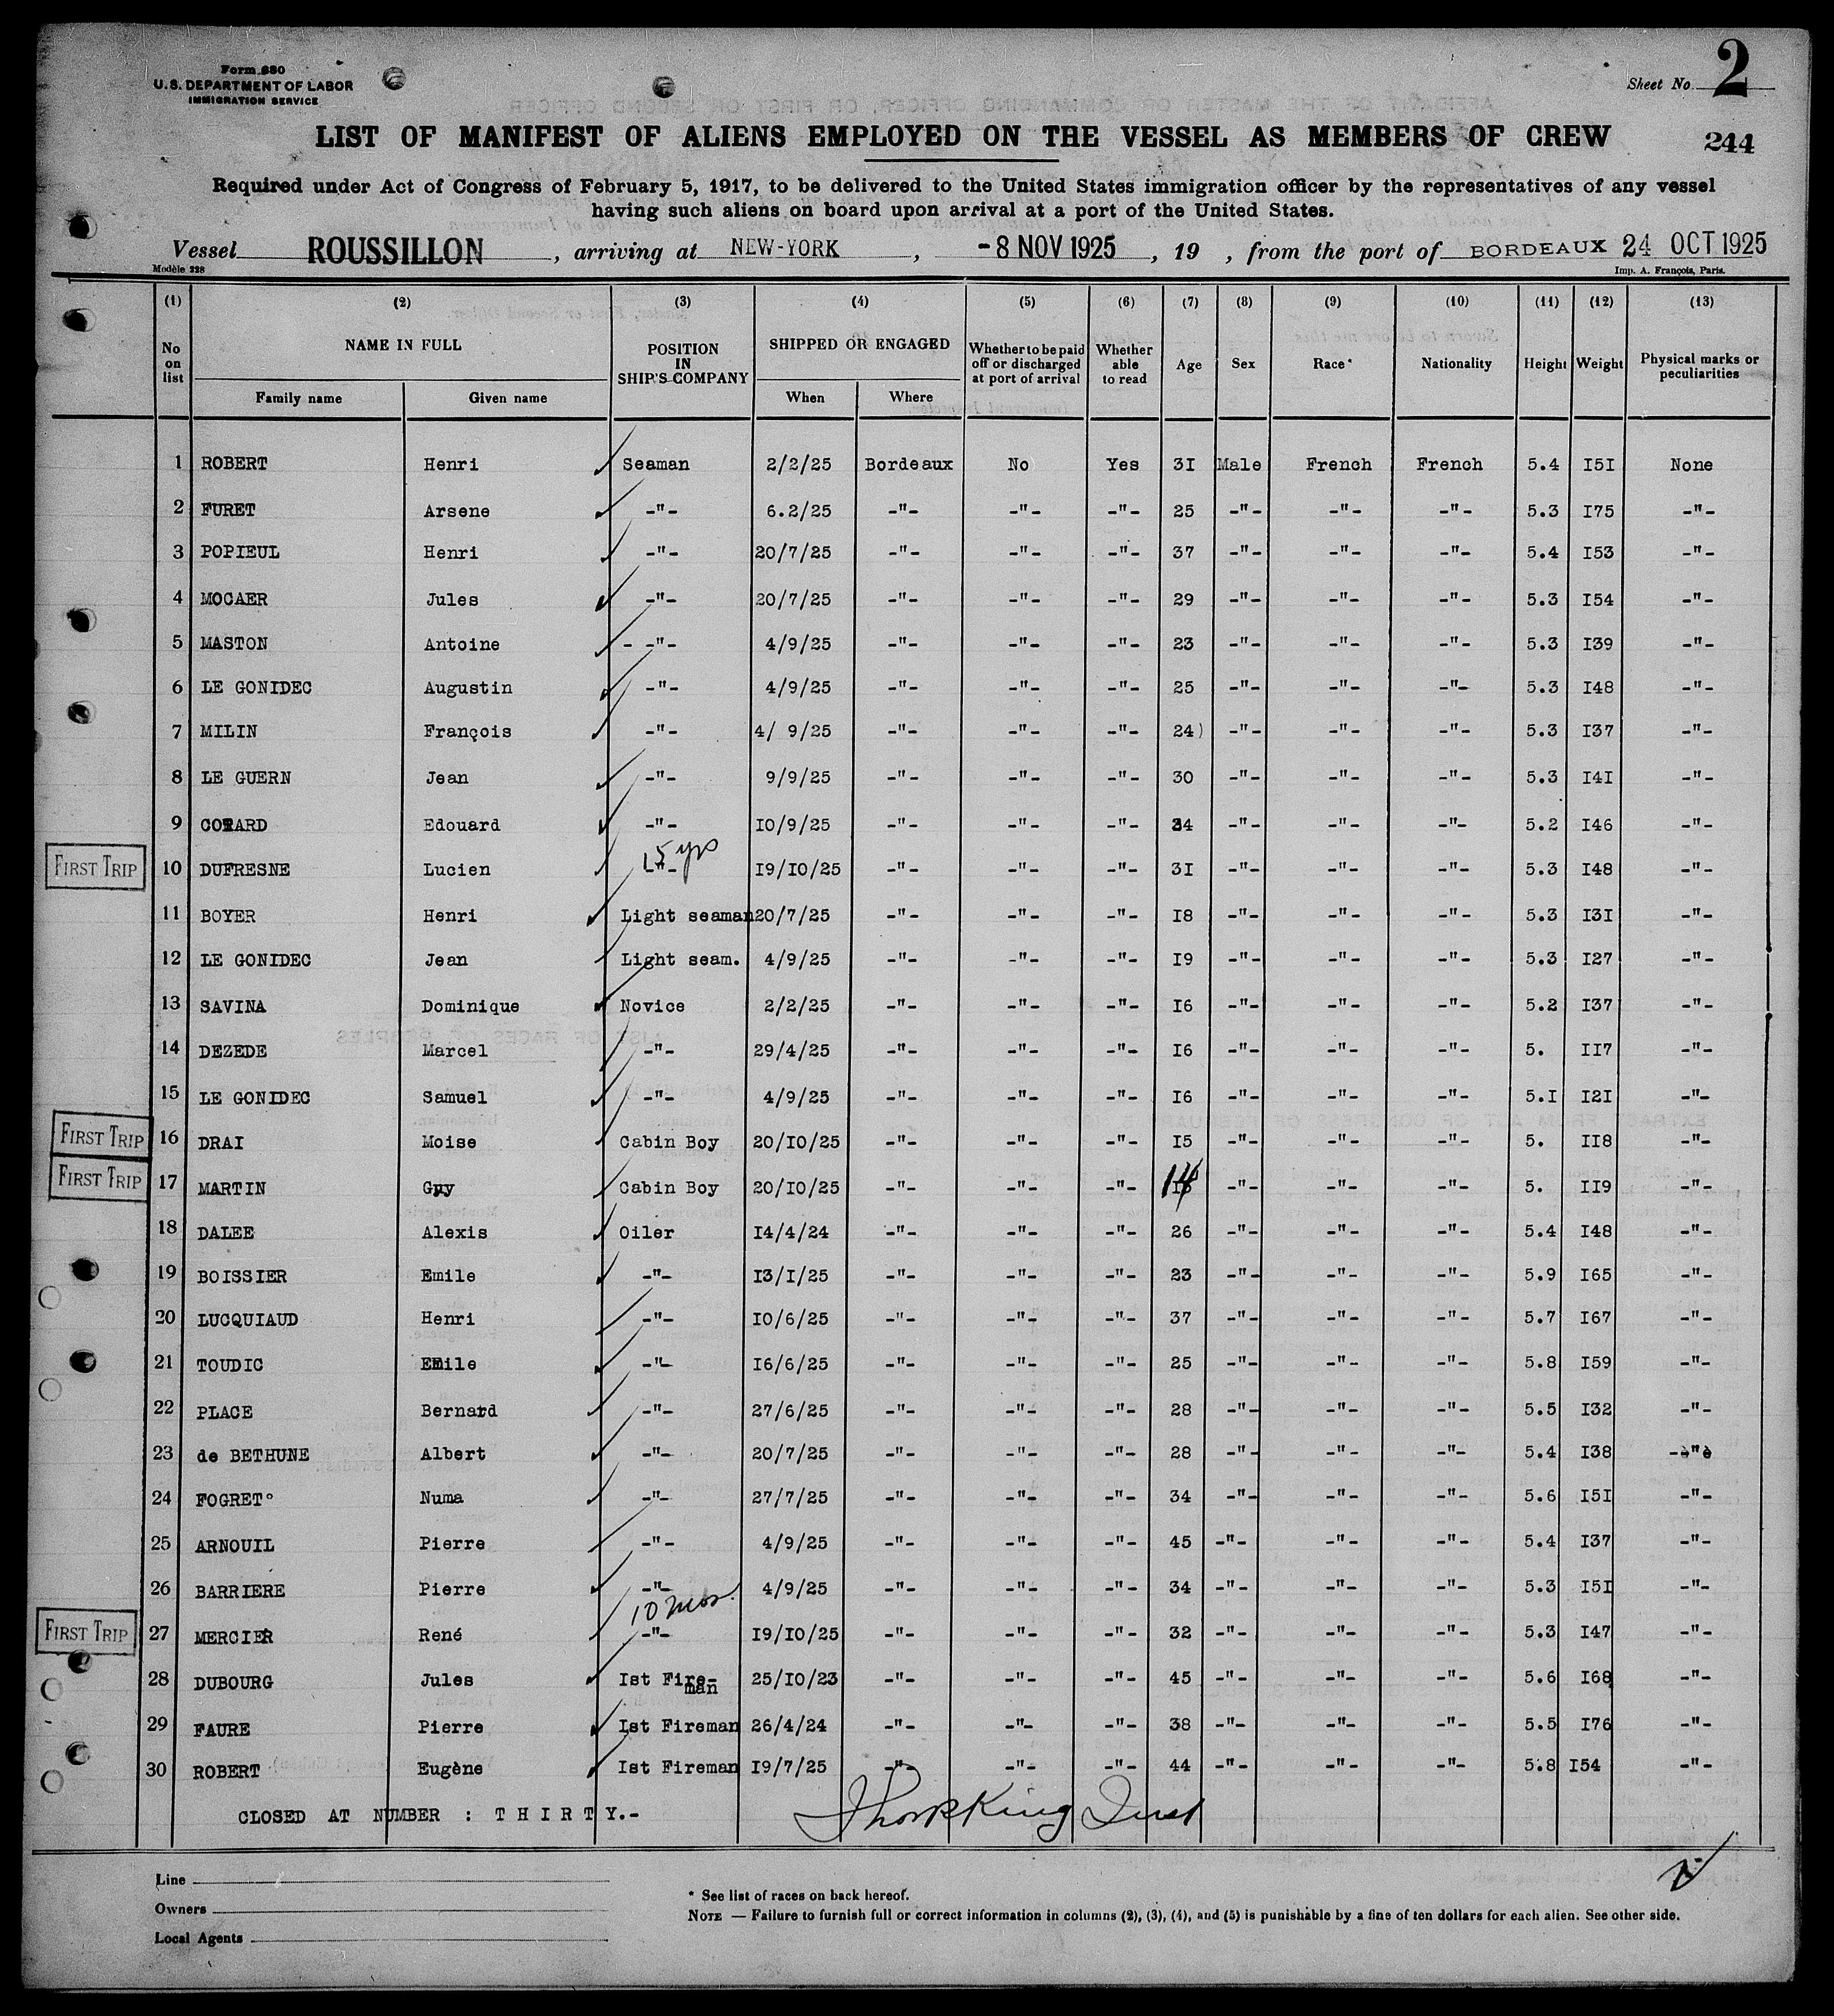 Form 680
U.S. DEPARTMENT OF LABOR
IMMIGRATION SERVICE
Sheet No. 2
LIST OF MANIFEST OF ALIENS EMPLOYED ON THE VESSEL AS MEMBERS OF CREW 244
Required under Act of Congress of February 5, 1917, to be delivered to the United States immigration officer by the representatives of any vessel
having such aliens on board upon arrival at a port of the United States.
Vessel ROUSSILLON, arriving at NEW-YORK, -8 NOV 1925, 19 , from the port of BORDEAUX 24 OCT 1925
Modèle 228 Imp. A. François, Paris.
(1) (2) (3) (4) (5) (6) (7) (8) (9) (10) (11) (12) (13)
No on list NAME IN FULL Family name Given name POSITION IN SHIP'S COMPANY SHIPPED OR ENGAGED When Where Whether to be paid off or discharged at port of arrival Whether able to read Age Sex Race* Nationality Height Weight Physical marks or peculiarities
1 ROBERT Henri Seaman 2/2/25 Bordeaux No Yes 3I Male French French 5.4 I5I None
2 FURET Arsene -"- 6.2/25 -"- -"- -"- 25 -"- -"- -"- 5.3 I75 -"-
3 POPIEUL Henri -"- 20/7/25 -"- -"- -"- 37 -"- -"- -"- 5.4 I53 -"-
4 MOCAER Jules -"- 20/7/25 -"- -"- -"- 29 -"- -"- -"- 5.3 I54 -"-
5 MASTON Antoine - -"- 4/9/25 -"- -"- -"- 23 -"- -"- -"- 5.3 I39 -"-
6 LE GONIDEC Augustin -"- 4/9/25 -"- -"- -"- 25 -"- -"- -"- 5.3 I48 -"-
7 MILIN François -"- 4/ 9/25 -"- -"- -"- 24) -"- -"- -"- 5.3 I37 -"-
8 LE GUERN Jean -"- 9/9/25 -"- -"- -"- 30 -"- -"- -"- 5.3 I4I -"-
9 Edouard -"- I0/9/25 -"- -"- -"- 34 -"- -"- -"- 5.2 I46 -"-
15 yrs
FIRST TRIP 10 DUFRESNE Lucien -"- I9/I0/25 -"- -"- -"- 3I -"- -"- -"- 5.3 I48 -"-
11 BOYER Henri Light seaman 20/7/25 -"- -"- -"- I8 -"- -"- -"- 5.3 I3I -"-
12 LE GONIDEC Jean Light seam. 4/9/25 -"- -"- -"- I9 -"- -"- -"- 5.3 I27 -"-
13 SAVINA Dominique Novice 2/2/25 -"- -"- -"- I6 -"- -"- -"- 5.2 I37 -"-
14 DEZEDE Marcel -"- 29/4/25 -"- -"- -"- I6 -"- -"- -"- 5. II7 -"-
15 LE GONIDEC Samuel -"- 4/9/25 -"- -"- -"- I6 -"- -"- -"- 5.I I2I -"-
FIRST TRIP 16 DRAI Moise Cabin Boy 20/I0/25 -"- -"- -"- I5 -"- -"- -"- 5. II8 -"-
FIRST TRIP 17 MARTIN Guy Cabin Boy 20/I0/25 -"- -"- -"- 14 -"- -"- -"- 5. II9 -"-
18 DALEE Alexis Oiler I4/4/24 -"- -"- -"- 26 -"- -"- -"- 5.4 I48 -"-
19 BOISSIER Emile -"- I3/I/25 -"- -"- -"- 23 -"- -"- -"- 5.9 I65 -"-
20 LUCQUIAUD Henri -"- I0/6/25 -"- -"- -"- 37 -"- -"- -"- 5.7 I67 -"-
21 TOUDIC Emile -"- I6/6/25 -"- -"- -"- 25 -"- -"- -"- 5.8 I59 -"-
22 PLACE Bernard -"- 27/6/25 -"- -"- -"- 28 -"- -"- -"- 5.5 I32 -"-
23 de BETHUNE Albert -"- 20/7/25 -"- -"- -"- 28 -"- -"- -"- 5.4 I38 -è"è
24 FOGRET° Numa -"- 27/7/25 -"- -"- -"- 34 -"- -"- -"- 5.6 I5I -"-
25 ARNOUIL Pierre -"- 4/9/25 -"- -"- -"- 45 -"- -"- -"- 5.4 I37 -"-
26 BARRIERE Pierre -"- 4/9/25 -"- -"- -"- 34 -"- -"- -"- 5.3 I5I -"-
10 mos.
FIRST TRIP 27 MERCIER René -"- I9/I0/25 -"- -"- -"- 32 -"- -"- -"- 5.3 I47 -"-
28 DUBOURG Jules Ist Fire-man 25/I0/23 -"- -"- -"- 45 -"- -"- -"- 5.6 I68 -"-
29 FAURE Pierre Ist Fireman 26/4/24 -"- -"- -"- 38 -"- -"- -"- 5.5 I76 -"-
30 ROBERT Eugène Ist Fireman I9/7/25 -"- -"- -"- 44 -"- -"- -"- 5.8 I54 -"-
CLOSED AT NUMBER : T H I R T Y.-
Line
Owners
Local Agents
* See list of races on back hereof.
NOTE — Failure to furnish full or correct information in columns (2), (3), (4), and (5) is punishable by a fine of ten dollars for each alien. See other side.